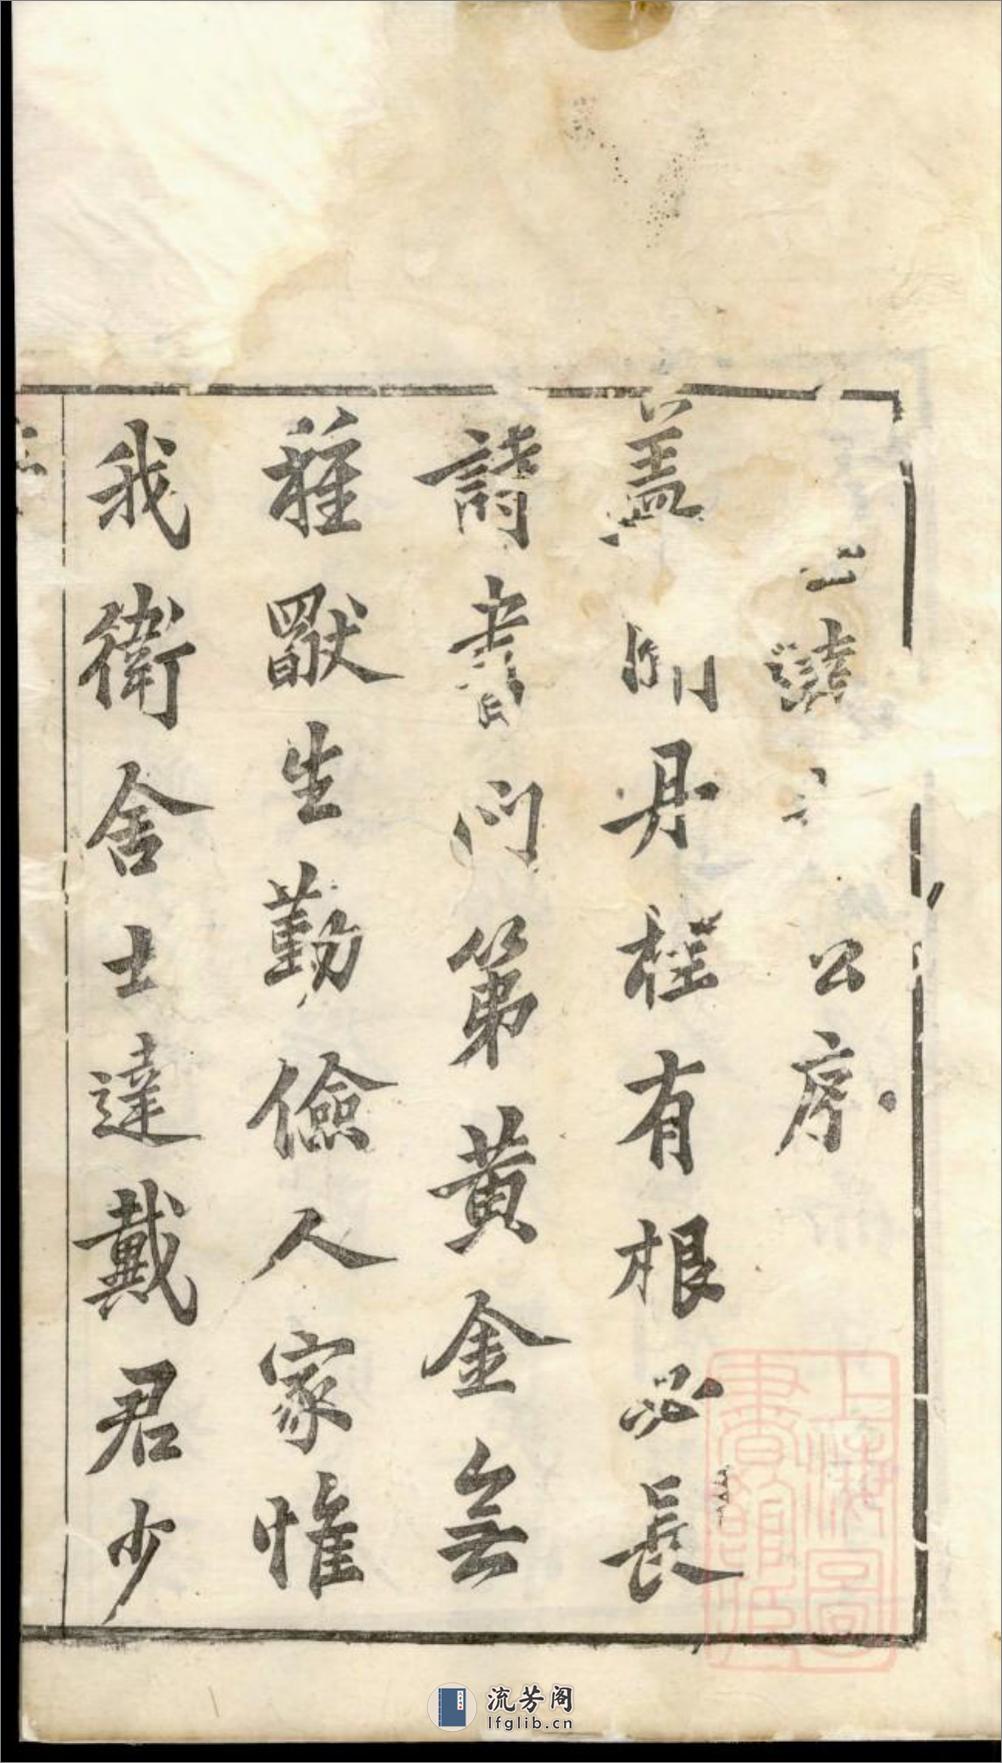 公序
蓋聞丹桂有根必長
詩書門第黃金無
種獸生勤儉人家惟
我衛舍士達戴君少
上海圖書館藏
流芳阁
lfglib.cn